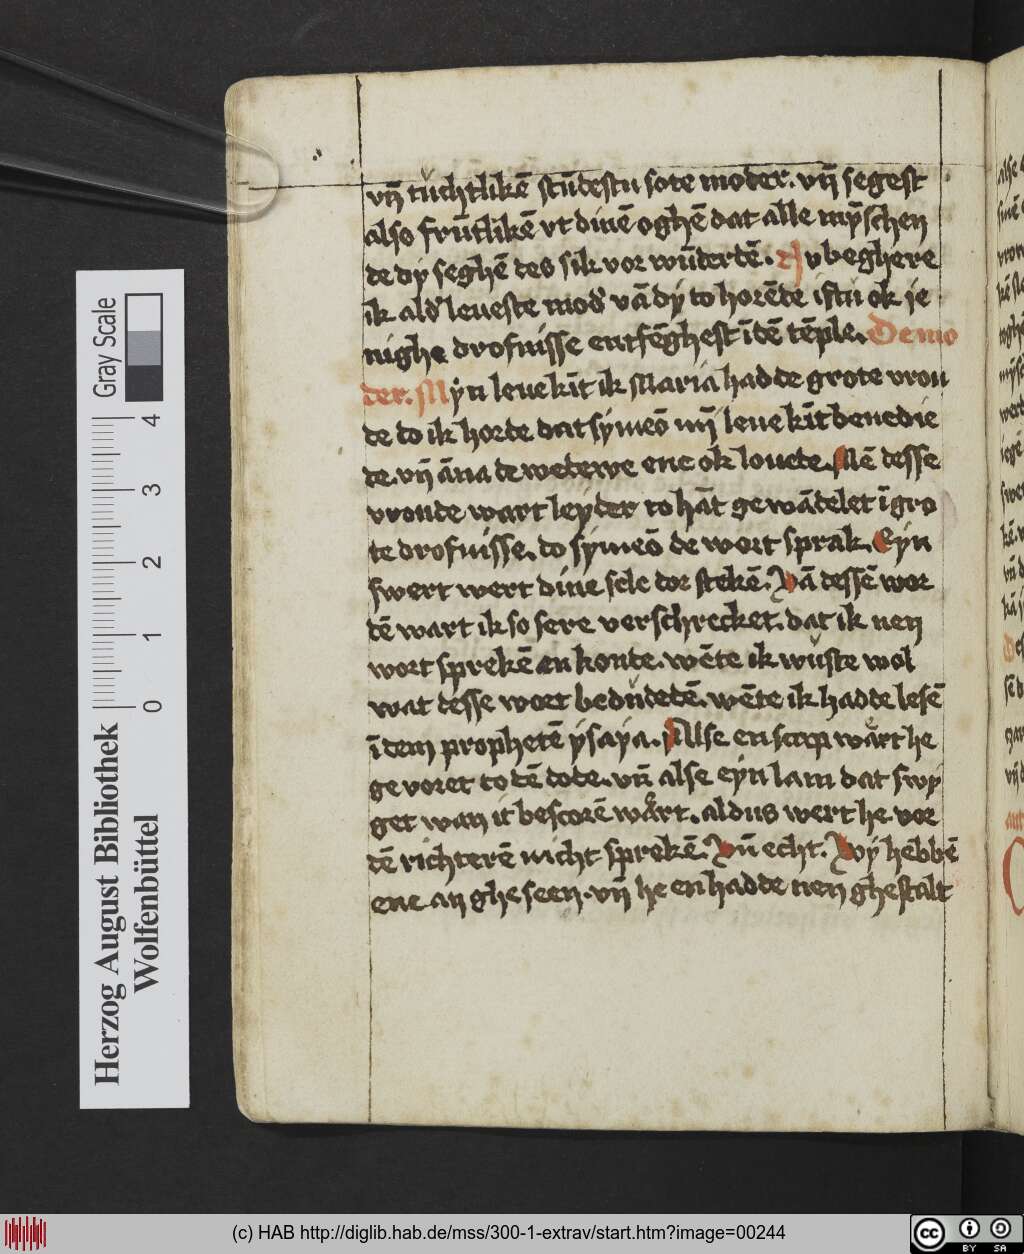 vn̄ tuchtlikē stūdestu sote moder. vn̄ segest
also frūtlikē vt dinē oghē dat alle mȳschen
de dy seghē des sik vor wūderdē. Nu beghere
ik ald' leueste mod' vā dy to horēde iftu ok je
nighe drofnisse entfēghest ī dē tēple. De mo
der. Myn leue kīt ik Maria hadde grote vrou
de do ik horde dat symeō mȳ leue kīt benedie
de. vn̄ āna de wedewe ene ok louede. Mē desse
vroude wart leyder to hāt ge wādelet ī gro
te drofnisse. do symeō de wort sprak. Eyn
swert wert dine sele dor stekē. Vā dessē wor
dē wart ik so sere verschrecket. dat ik nen
wort sprekē en konde. wēte ik wuste wol
wat desse wort bedudedē. wēte ik hadde lesē
ī dem prophetē ysaya. Alse en scap wart he
ge voret to dē dode. vn̄ alse eyn lam dat swy
get wan it bescorē wart. aldus wert he vor
dē richterē nicht sprekē. Vn̄ echt. Wy hebbē
ene an ghe seen. vn̄ he en hadde nen ghestalt
Herzog August Bibliothek
Wolfenbüttel
Gray Scale
0 1 2 3 4
(c) HAB http://diglib.hab.de/mss/300-1-extrav/start.htm?image=00244
cc BY SA